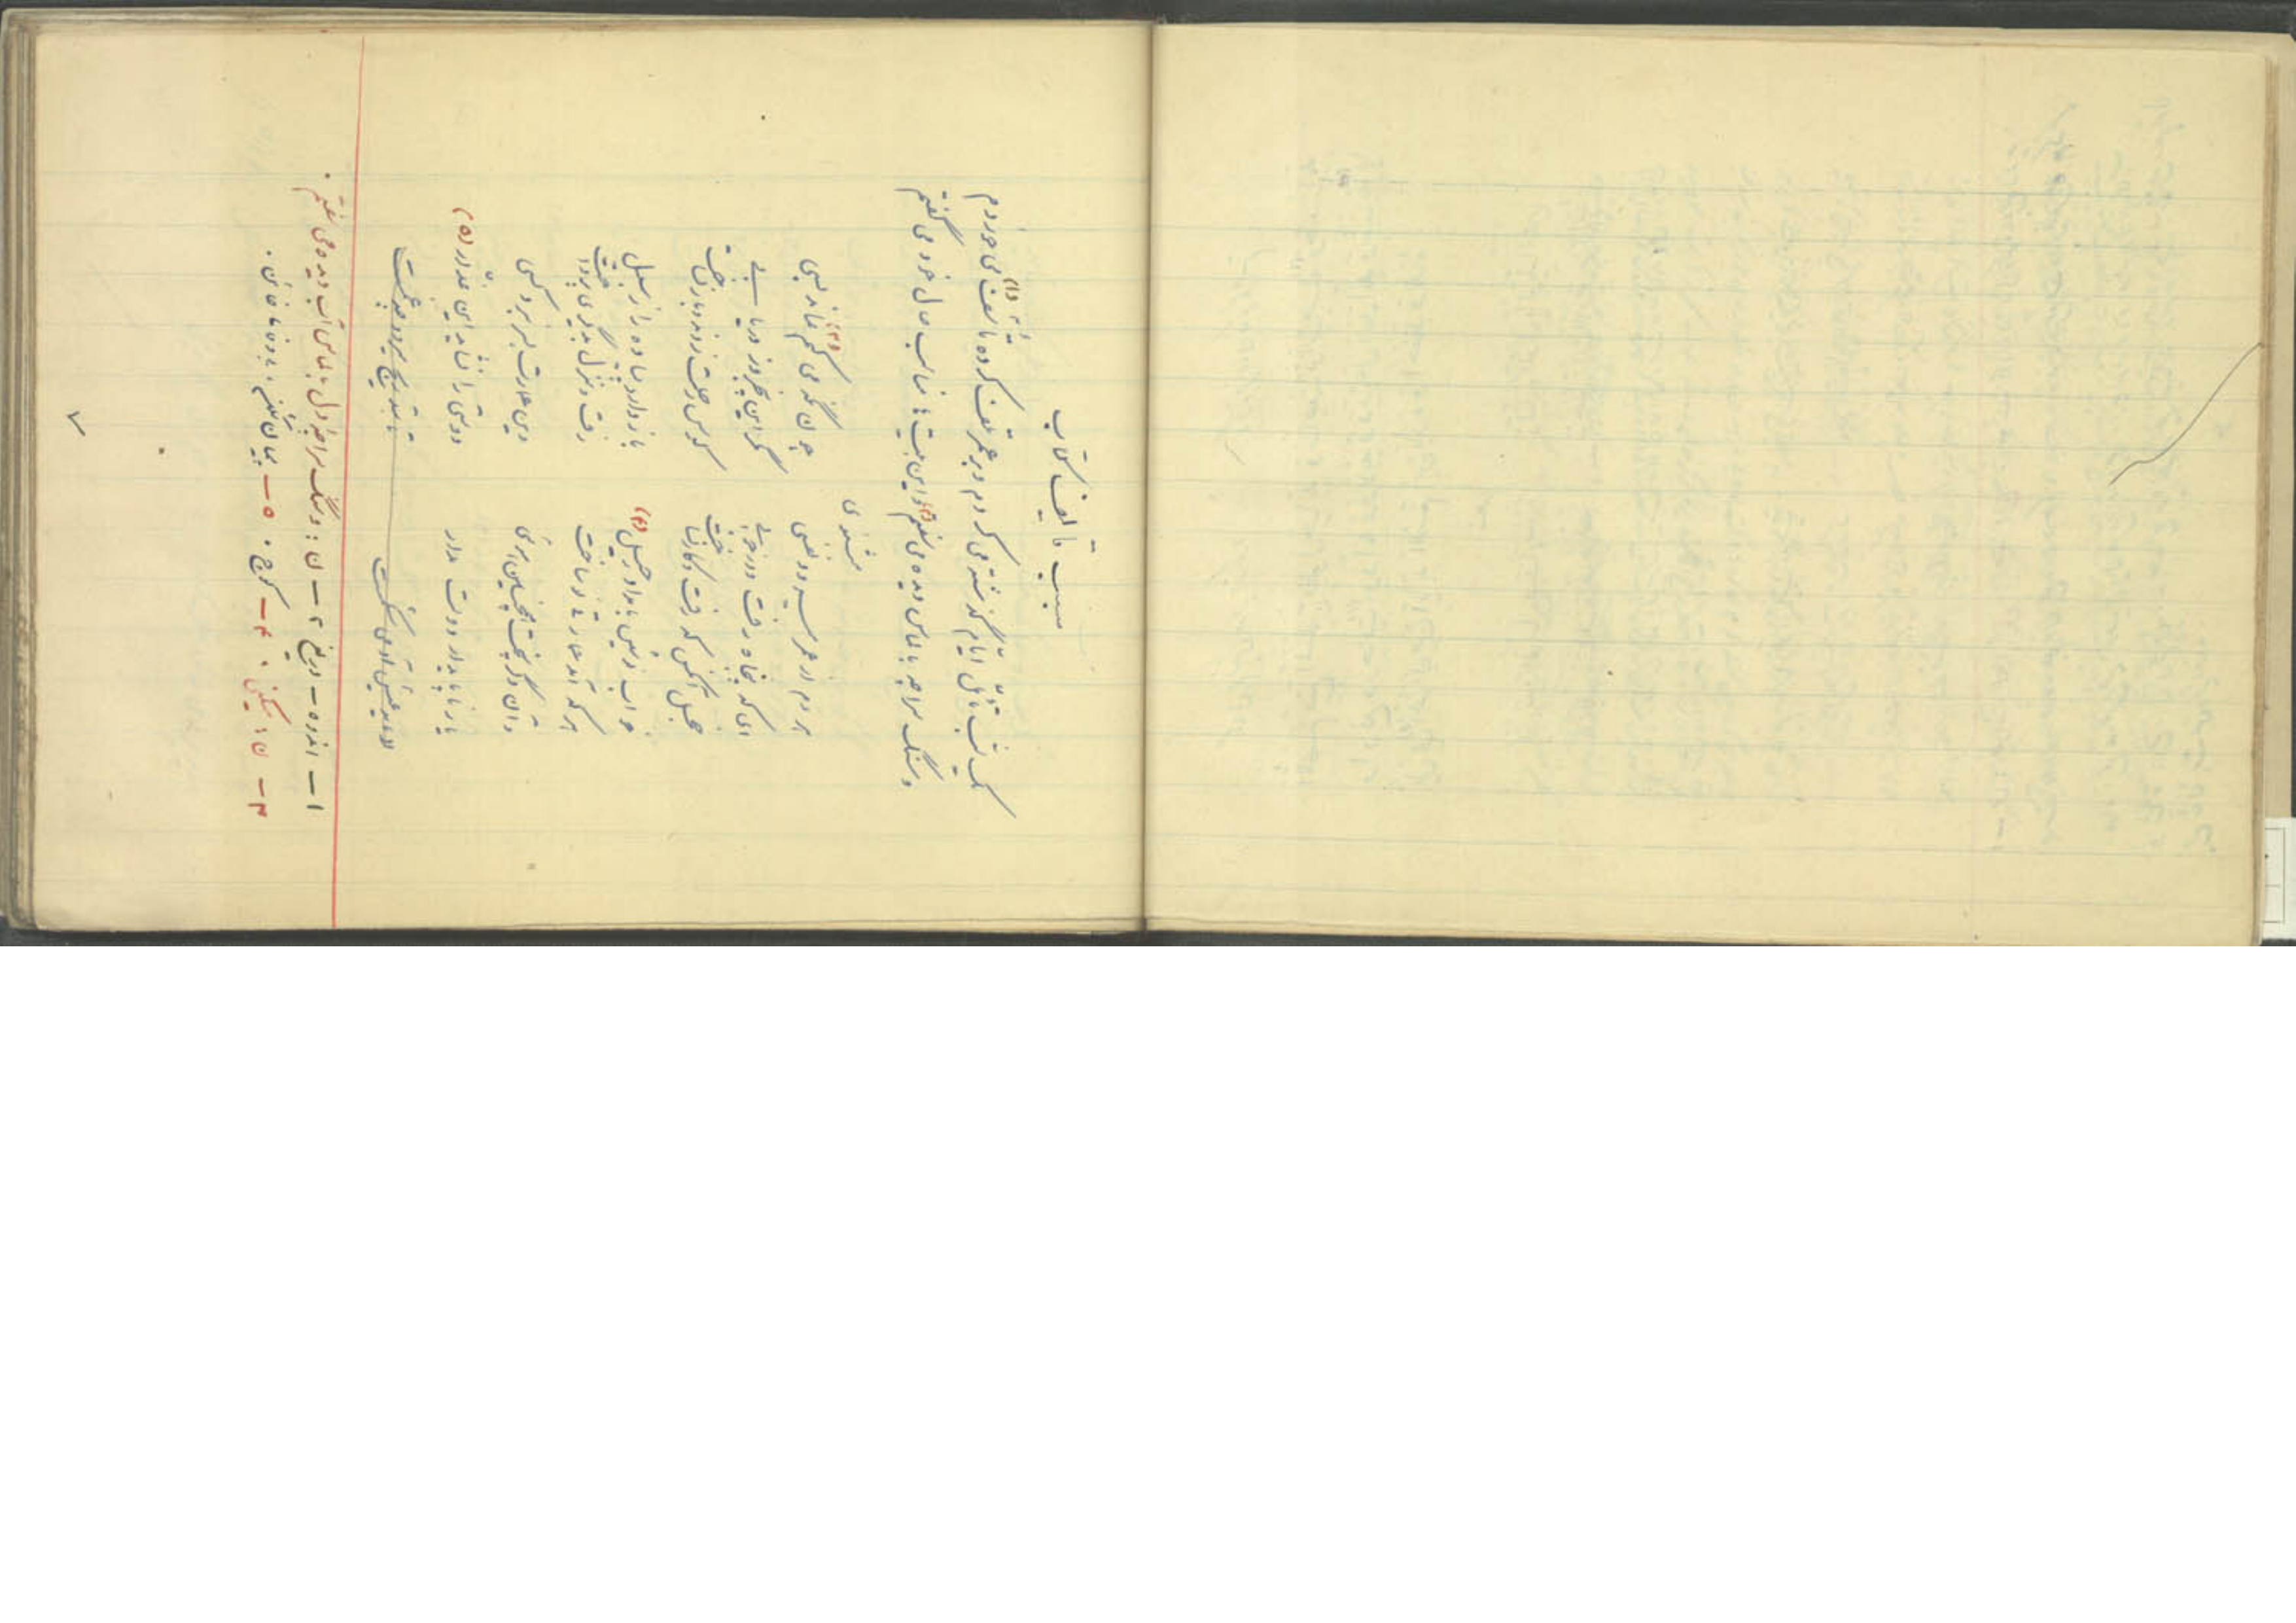 سبب تألیف کتاب
یک شب تأمّل ایّام گذشته می‌کردم و بر عمر تلف کرده تأسف (۱) می‌خوردم
و سنگ سراچه بالماس دیده می سفتم (۲) و این بیت‌ها مناسب حال خود می‌گفتم
مثنوی
هر دم از عمر میرود نفسی چون نگه می کنم (۳) نماند بسی
ای که پنجاه رفت و در خوابی مگر این پنجروز دریابی
خجل آنکس که رفت و کار نساخت کوس رحلت زدند و بار نساخت
خواب نوشین بامداد رحیل (۴) باز دارد پیاده را ز سبیل
هر که آمد عمارتی نو ساخت رفت و منزل بدیگری پرداخت
و آن دگر پخت همچنین هوسی وین عمارت بسر نبرد کسی
یار ناپایدار دوست مدار دوستی را نشاید این غدّار (۵)
مادهٔ عیش آدمی شکمست تا بتدریج میرود چه غمست
۱ – اندوه – دریغ ۲ – ن : و سنگ سراچهٔ دل بالماس آب دیده می سفتم .
۳ – ن : میکنی . ۴ – کوچ . ۵ – پیمان شکن ، با وفا خائن .
۷